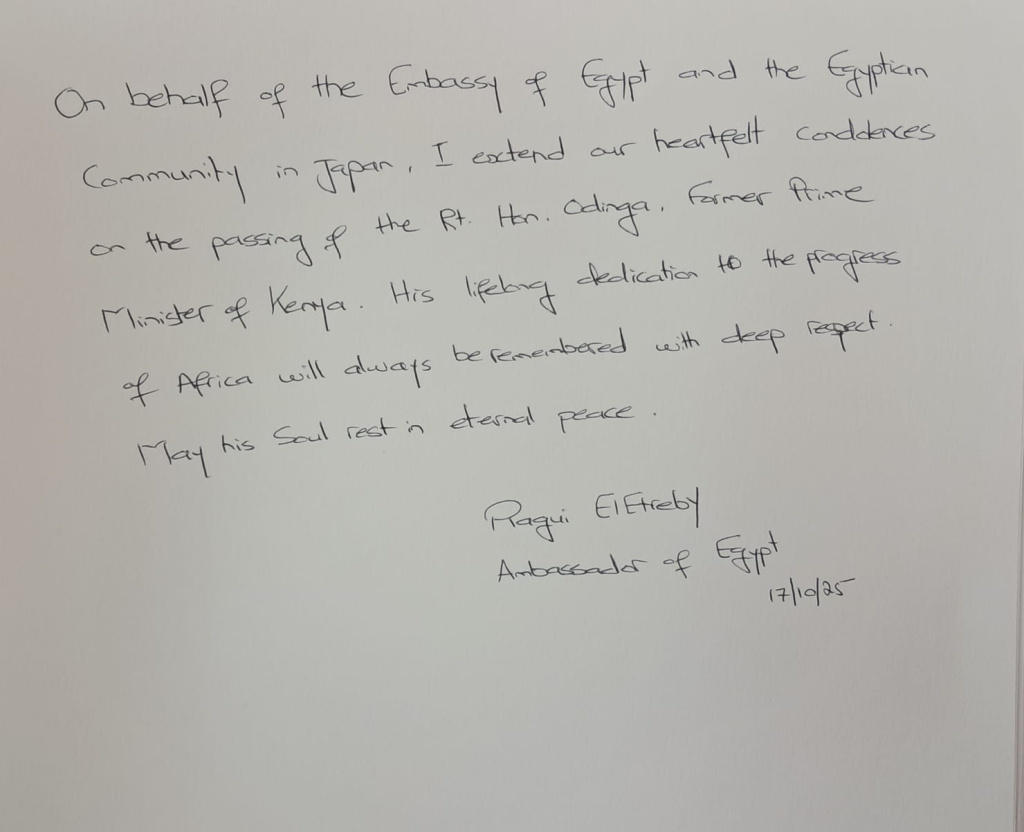 On behalf of the Embassy of Egypt and the Egyptian
Community in Japan, I extend our heartfelt condolences
on the passing of the Rt. Hon. Odinga, Former Prime
Minister of Kenya. His lifelong dedication to the progress
of Africa will always be remembered with deep respect.
May his Soul rest in eternal peace.
Ragui ElEtreby
Ambassador of Egypt
17/10/25